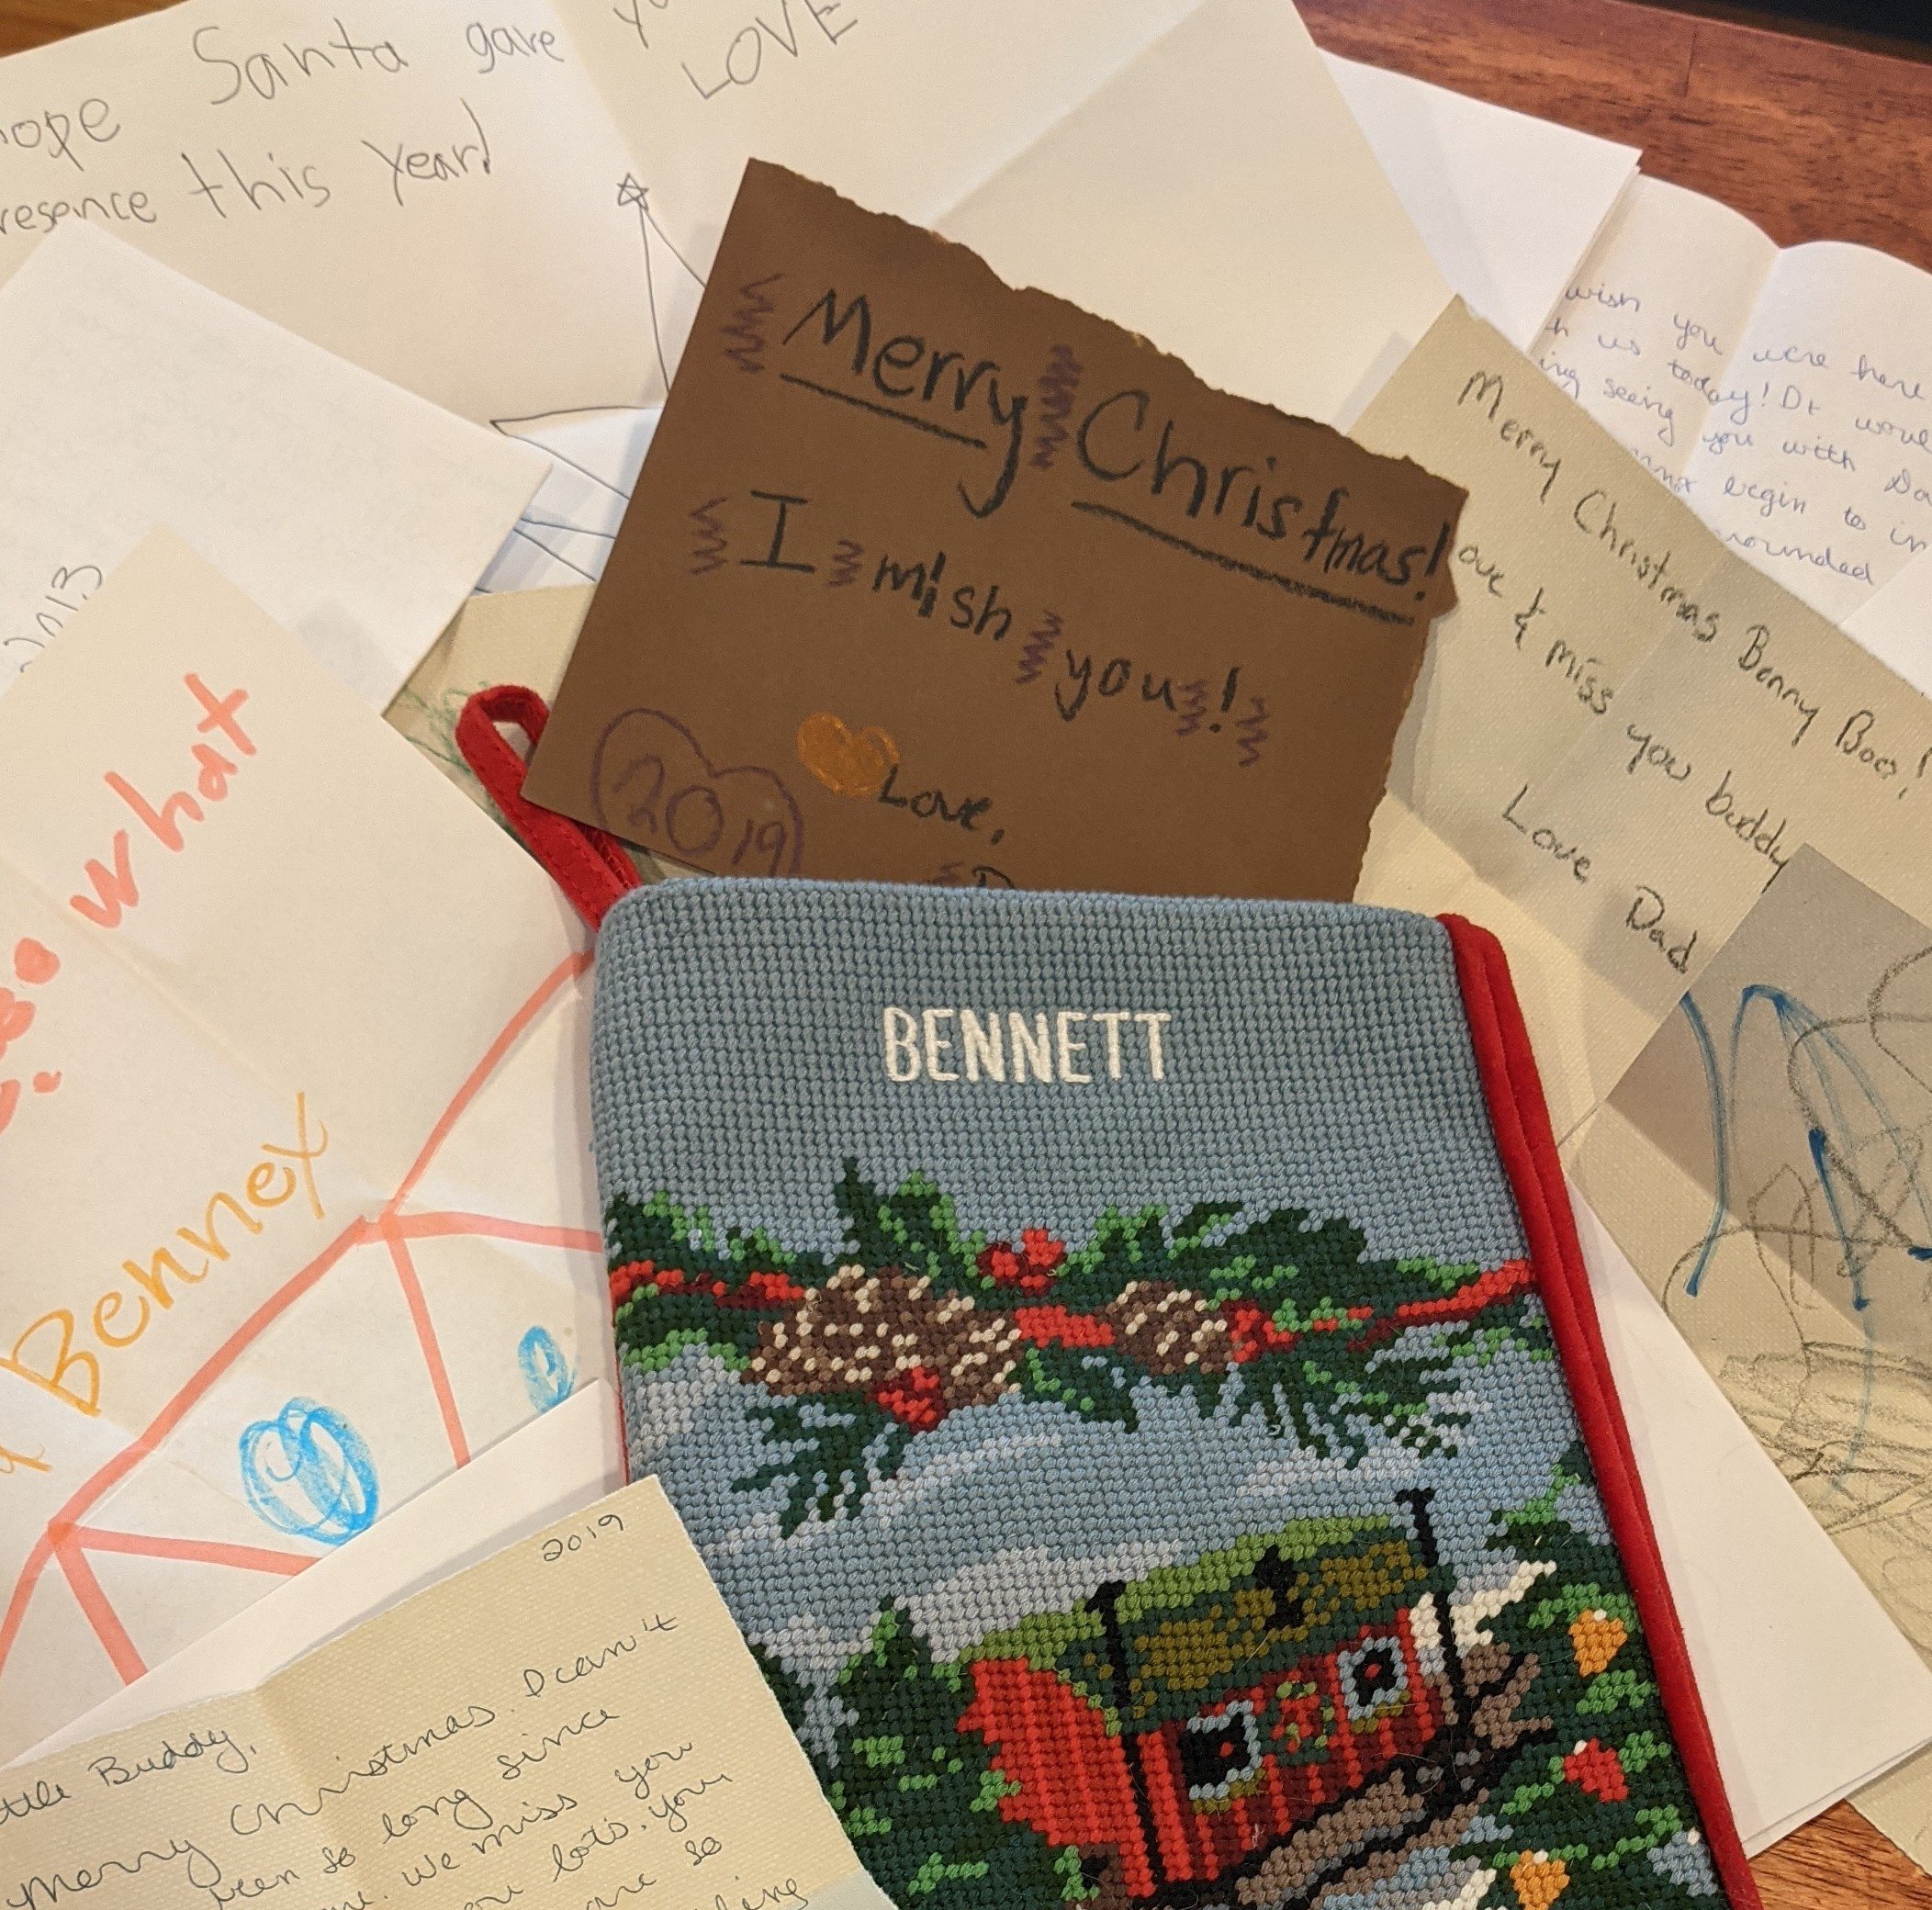 Santa gave
LOVE
this Year!
Merry Christmas!
I mish you!
2019
Love,
wish you were here
us today! It
seeing you with
begin to
Merry Christmas Benny Boo!
& miss you buddy
Love Dad
2013
what
Benney
BENNETT
2019
Buddy,
Merry Christmas. I can't
been so long since
We miss you
lots. You
are so